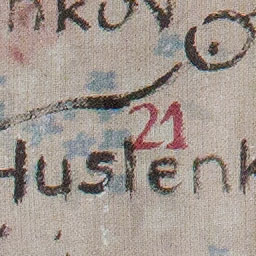 nkov
21
Huslenk